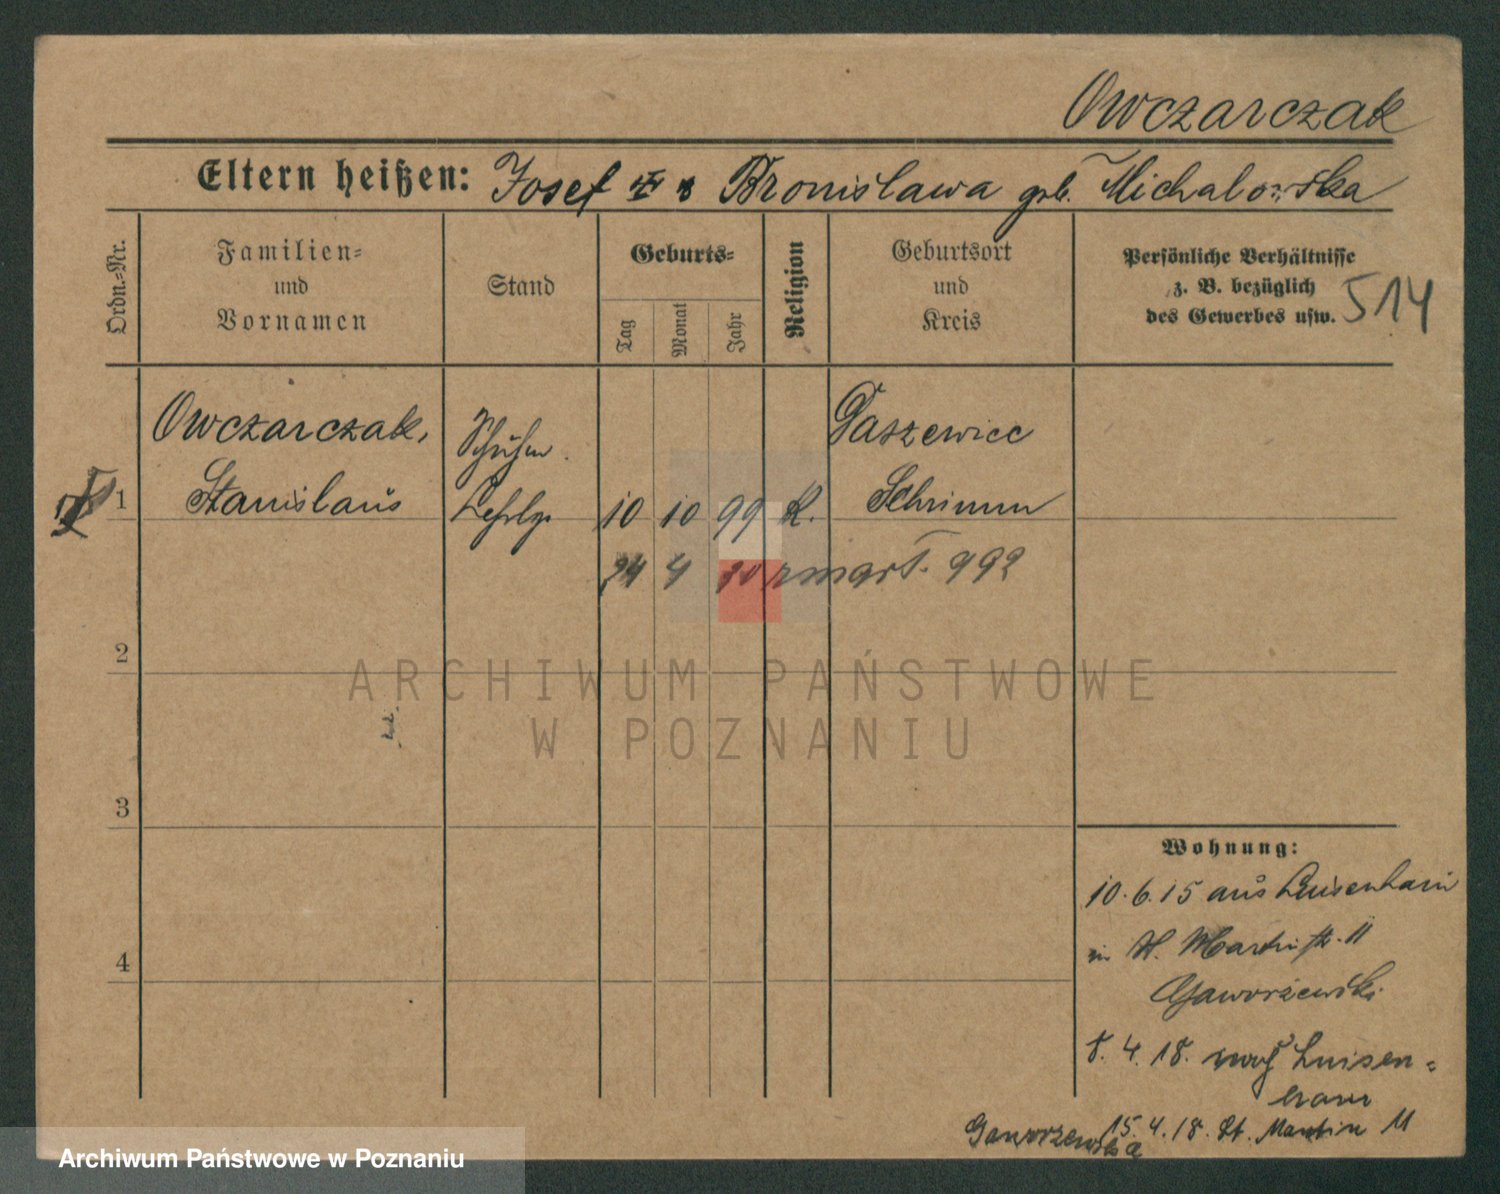 Owczarczak
Eltern heißen: Josef u Bronislawa geb. Michalowska
Ordn.=Nr.
Familien=
und
Vornamen
Stand
Geburts=
Tag
Monat
Jahr
Religion
Geburtsort
und
Kreis
Persönliche Verhältnisse
z. B. bezüglich
des Gewerbes usw.
514
Owczarczak,
Stanislaus
Schuhm.
Lehrlg.
1
10 10 99 K.
Gaszewice
Schrimm
24 4 30 zmarł. 992
2
3
4
Wohnung:
10.6.15 aus Luisenhain
in St. Martinstr. 11
Gaworzewski
8.4.18. nach Luisen=
hain
15.4.18. St. Martin 11
Gaworzewska
ARCHIWUM PAŃSTWOWE
W POZNANIU
Archiwum Państwowe w Poznaniu